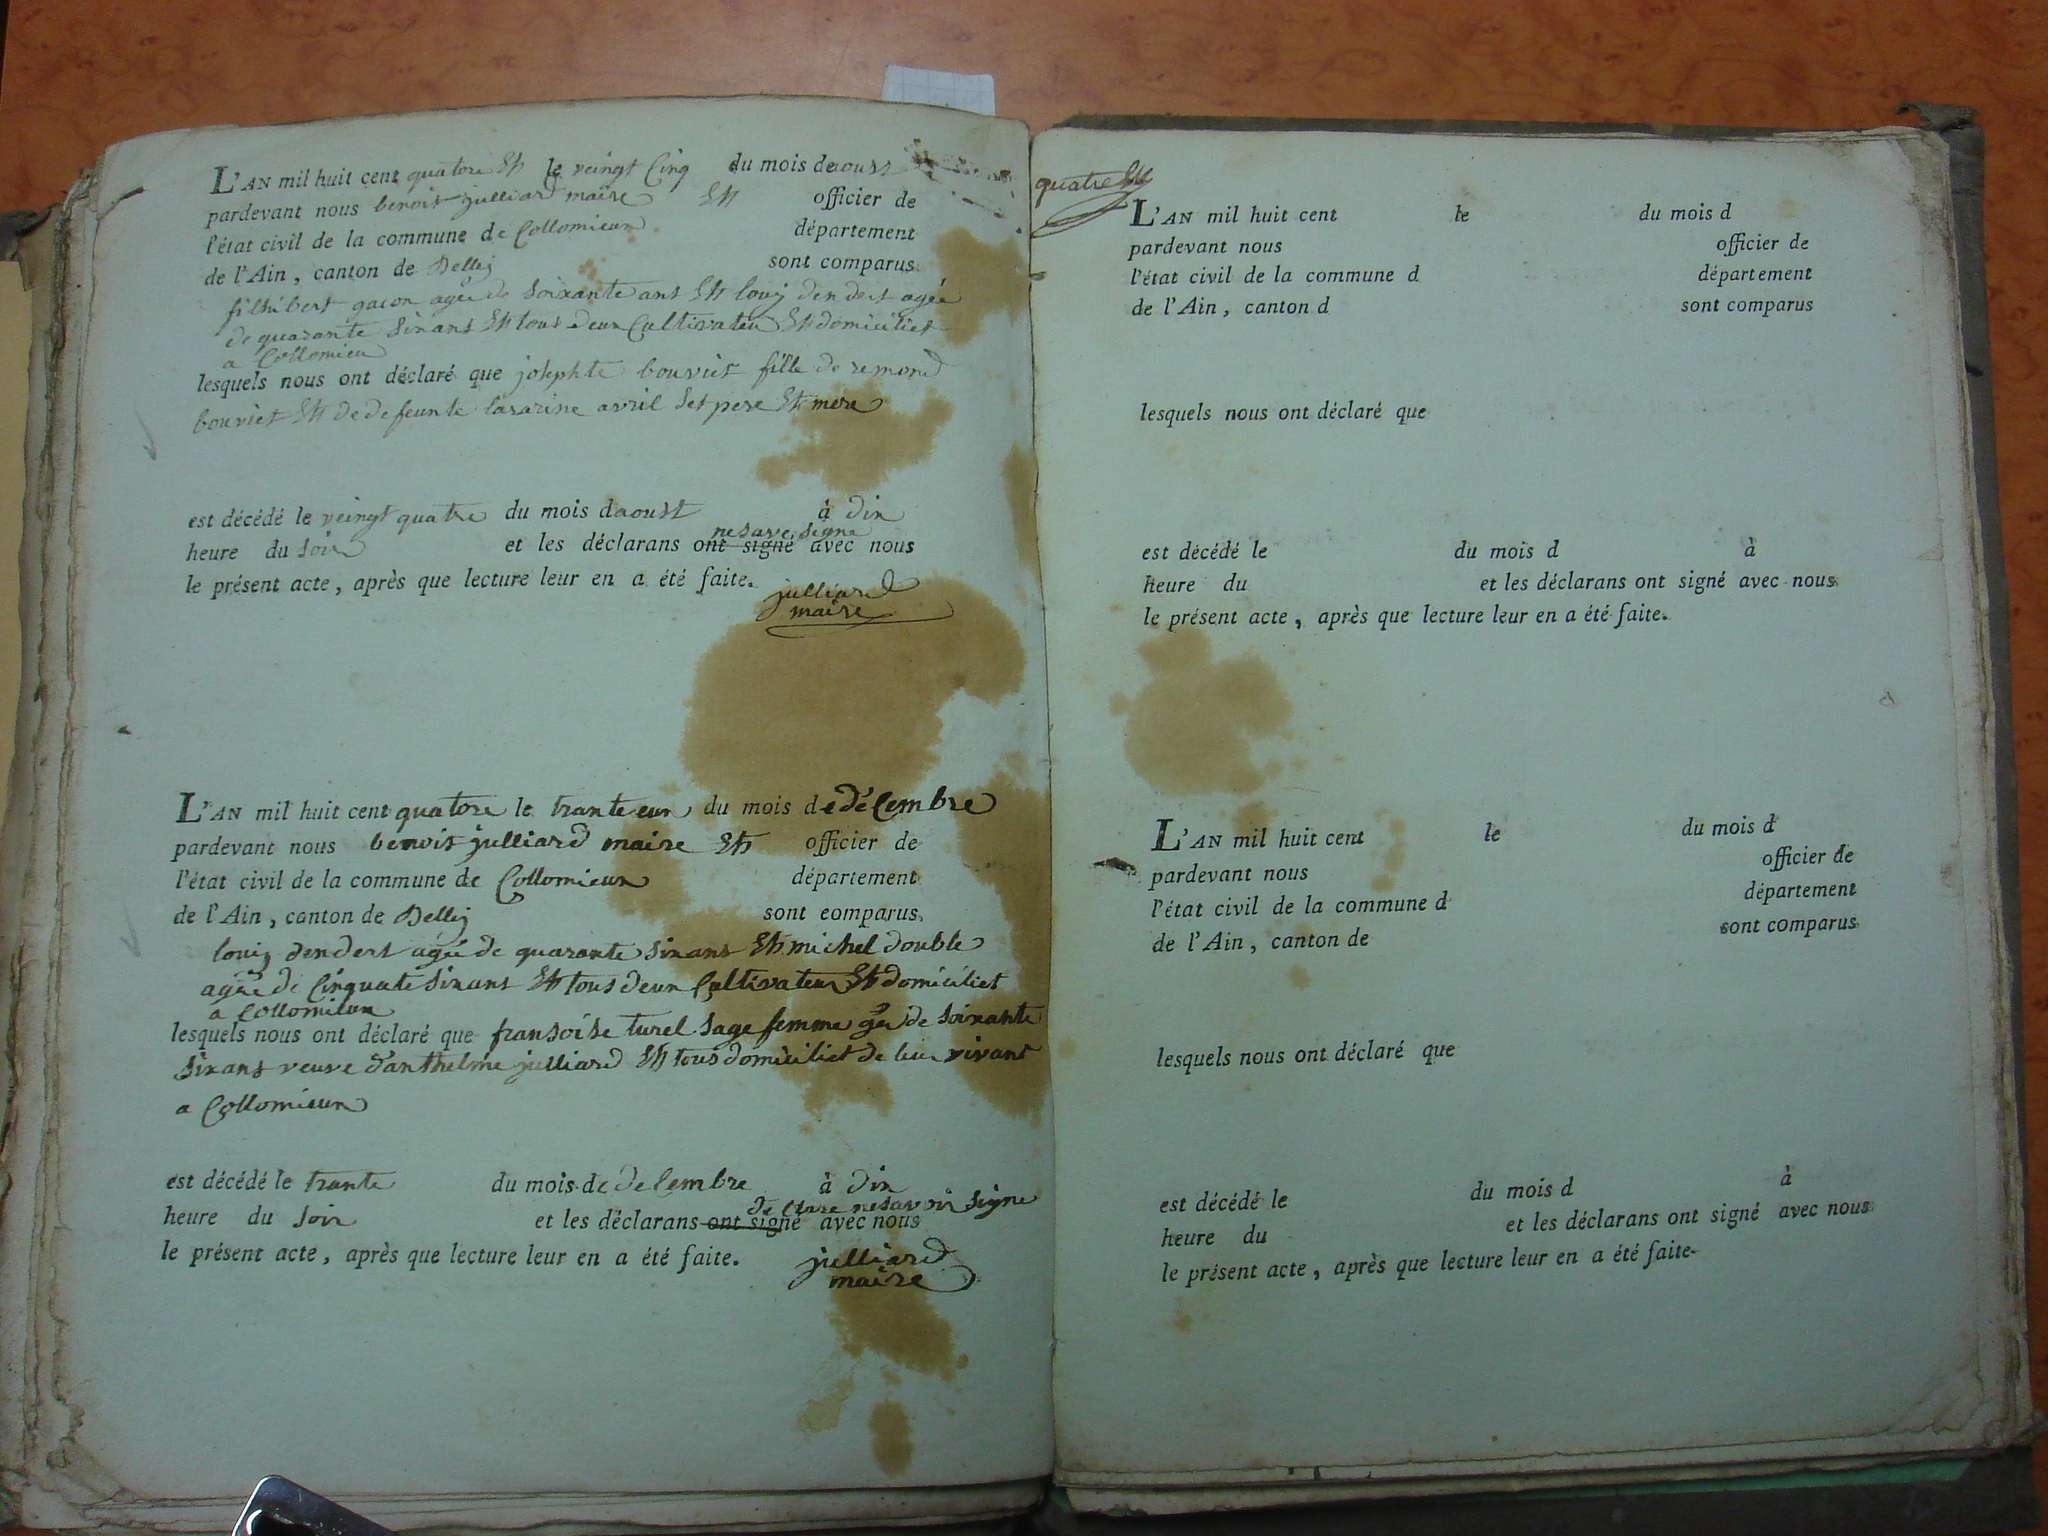 L'AN mil huit cent quatore Et le veingt Cinq du mois deaoust
pardevant nous benoit julliard maire Et officier de
l'état civil de la commune de Collomieux département
de l'Ain, canton de Belley sont comparus
filhibert gacon agée de soixante ans Et louis dendert agée
de quarante sixans Et tous deux Cultivateu Et domiciliet
a Collomieu
lesquels nous ont déclaré que josephte bouviet fille de remond
bouviet Et de defeunte lasarine avril set pere Et mere
est décédé le veingt quatre du mois daoust à dix
nesave signe
heure du soir et les déclarans ont signé avec nous
le présent acte, après que lecture leur en a été faite.
julliard
maire
L'AN mil huit cent quatore le trante eun du mois de deCembre
pardevant nous benoit julliard maire Et officier de
l'état civil de la commune de Collomieux département
de l'Ain, canton de Belley sont comparus
louis dendert agée de quarante sixans Et michel double
agée de Cinquate sixans Et tous deux Cultivateur Et domiciliet
a Collomieux
lesquels nous ont déclaré que fransoise turel sage femme gée de soixante
sixans veuve d'anthelme julliard Et tous domiciliet de leur vivant
a Collomieux
est décédé le trante du mois de deCembre à dix
de Clare nesavoir signe
heure du soir et les déclarans ont signé avec nous
le présent acte, après que lecture leur en a été faite.
julliard
maire
quatre
L'AN mil huit cent le du mois d
pardevant nous officier de
l'état civil de la commune d département
de l'Ain, canton d sont comparus
lesquels nous ont déclaré que
est décédé le du mois d à
heure du et les déclarans ont signé avec nous
le présent acte, après que lecture leur en a été faite.
L'AN mil huit cent le du mois d
pardevant nous officier de
l'état civil de la commune d département
de l'Ain, canton de sont comparus
lesquels nous ont déclaré que
est décédé le du mois d à
heure du et les déclarans ont signé avec nous
le présent acte, après que lecture leur en a été faite.